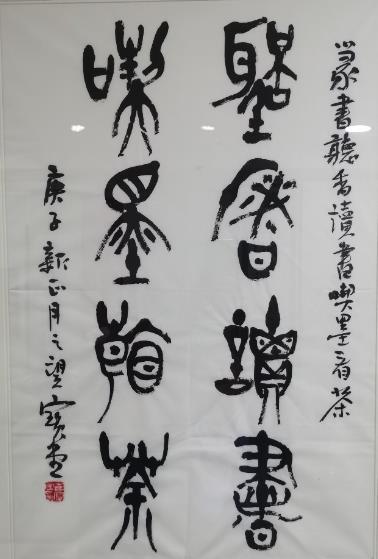 篆書聽香讀書喫墨看茶
聽香讀書
喫墨看茶
庚子新正月之望